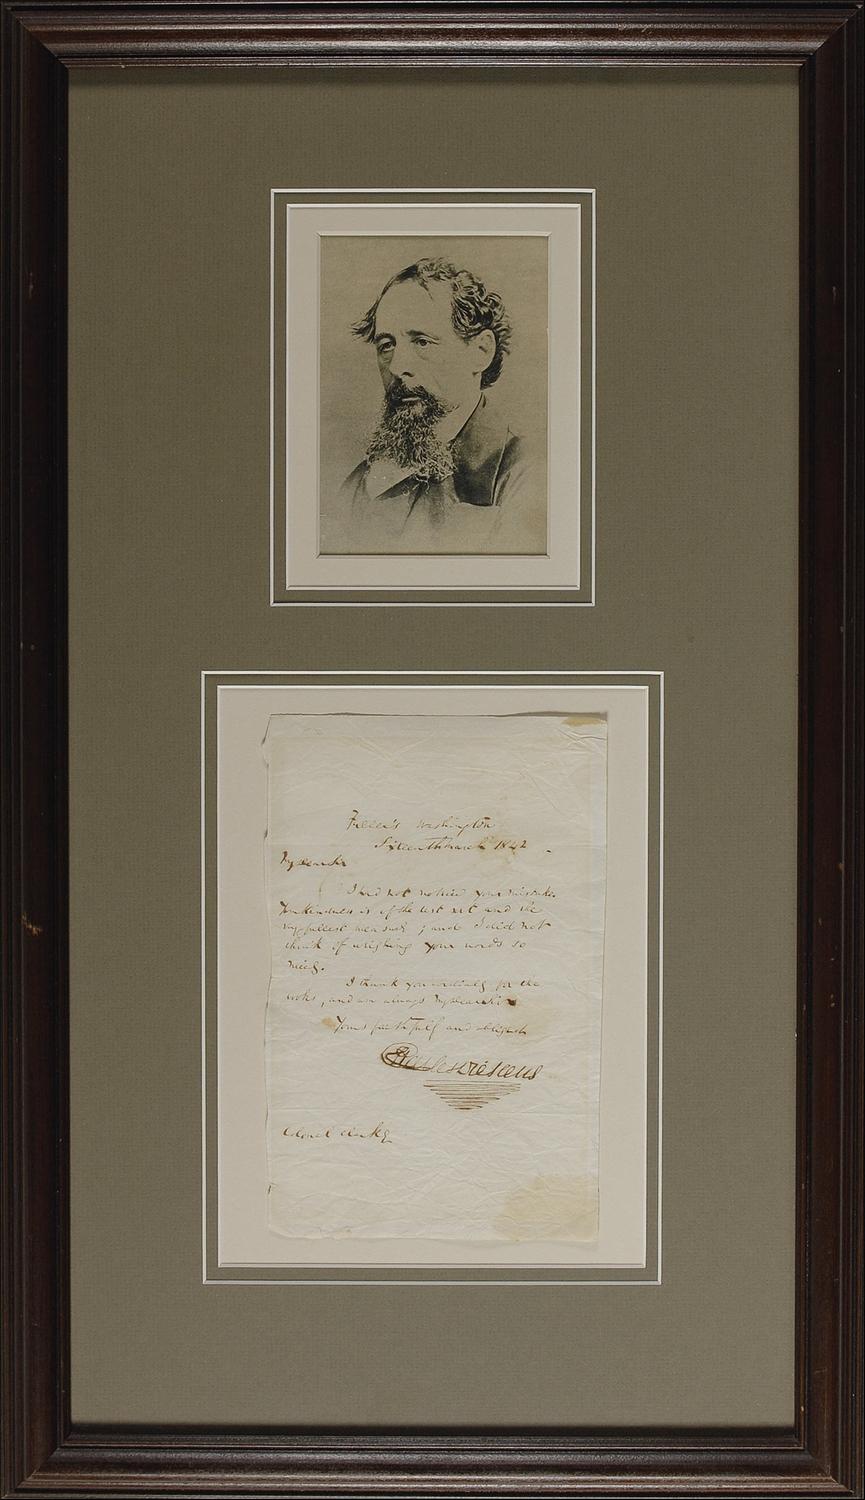 Fuller's Washington
Sixteenth March 1842.
My Dear Sir
I had not noticed your mistake.
Your kindness is of the best sort and the
very fullest measure; and I did not
think of weighing your words so
nicely.
I thank you cordially for the
books, and am always My Dear Sir
Yours faithfully and obliged
Charles Dickens
Colonel